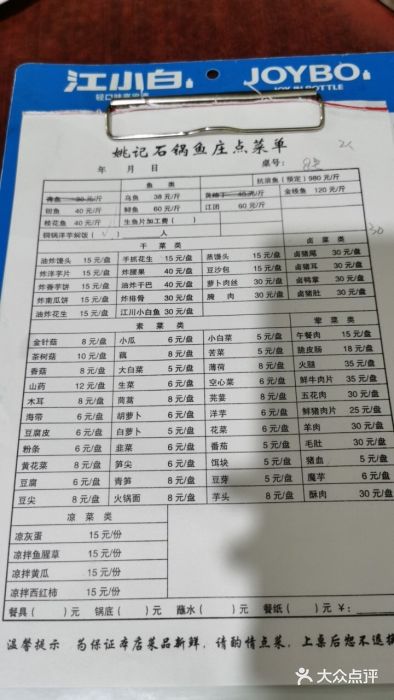 江小白 JOYBO
轻口味高粱酒 JOY IN BOTTLE
姚记石锅鱼庄点菜单
年 月 日 桌号:
鱼类 抗浪鱼(预定)980元/斤
青鱼 30元/斤 乌鱼 38元/斤 45元/斤 金线鱼 120元/斤
钳鱼 40元/斤 鲟鱼 60元/斤 江团 60元/斤
桂花鱼 40元/斤 生鱼片加工费( )
铜锅洋芋焖饭( ) 人
干菜类 卤菜类
油炸馒头 15元/盘 手抓花生 15元/盘 蒸馒头 15元/盘 卤猪尾 30元/盘
炸洋芋片 15元/盘 炸腰果 40元/盘 豆沙包 15元/盘 卤猪耳 30元/盘
炸香芋饼 15元/盘 油炸干巴 40元/盘 萝卜肉丝 30元/盘 卤鸭掌 30元/盘
炸南瓜饼 15元/盘 炸排骨 30元/盘 腌肉 30元/盘 卤猪肚 30元/盘
油炸花生 15元/盘 江川小白鱼 30元/盘
素菜类 荤菜类
金针菇 8元/盘 小瓜 6元/盘 小白菜 5元/盘 午餐肉 15元/盘
茶树菇 10元/盘 藕 8元/盘 苦菜 5元/盘 脆皮肠 18元/盘
香菇 8元/盘 大白菜 5元/盘 薄荷 8元/盘 火腿 35元/盘
山药 12元/盘 生菜 6元/盘 空心菜 6元/盘 鲜牛肉片 35元/盘
木耳 8元/盘 茼蒿 8元/盘 芫荽 8元/盘 五花肉 30元/盘
海带 6元/盘 胡萝卜 6元/盘 洋芋 6元/盘 鲜猪肉片 25元/盘
豆腐皮 6元/盘 白萝卜 5元/盘 花菜 6元/盘 羊肉 30元/盘
粉条 6元/盘 韭菜 6元/盘 番茄 5元/盘 毛肚 30元/盘
黄花菜 8元/盘 笋尖 6元/盘 饵块 5元/盘 猪血 5元/盘
豆腐 6元/盘 青笋 6元/盘 豆芽 5元/盘 魔芋 6元/盘
豆尖 8元/盘 火锅面 8元/盘 芋头 8元/盘 酥肉 30元/盘
凉菜类
凉灰蛋 15元/份
凉拌鱼腥草 15元/份
凉拌黄瓜 15元/份
凉拌西红柿 15元/份
餐具( )元 锅底( )元 蘸水( )元 餐纸( )元 ¥:
温馨提示 为保证本店菜品新鲜,请酌情点菜,上桌后恕不退换
大众点评